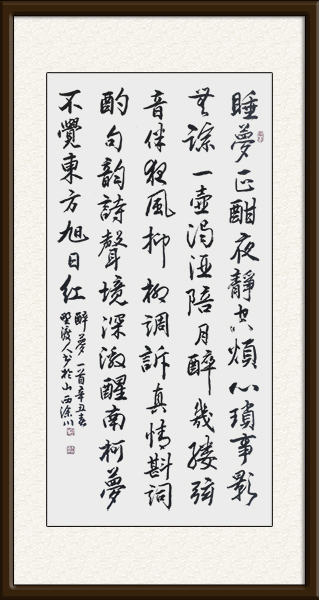 睡夢正酣夜靜煩心瑣事影
無踪一壺濁酒陪月醉幾縷弦
音伴夜風抑調訴真情斟詞
酌句韵詩聲境深激醒南柯夢
不覺東方旭日紅
醉夢一首辛丑春
渡人書於山西涂川